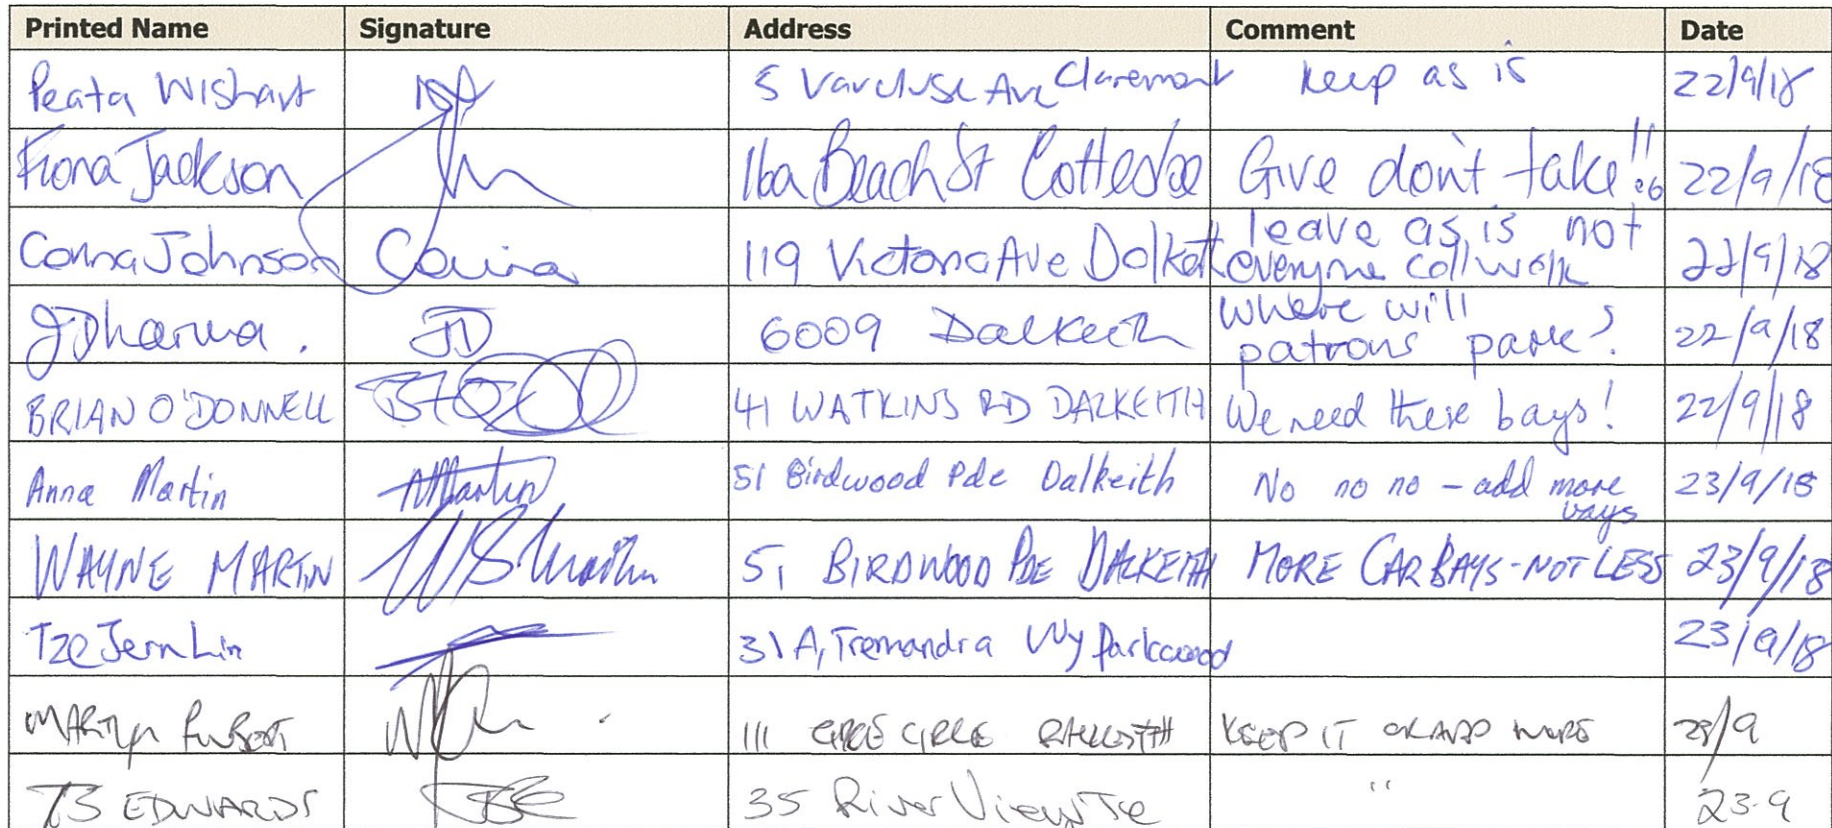 Printed Name Signature Address Comment Date
Peata Wishart 5 Vaucluse Ave Claremont keep as is 22/9/18
Fiona Jackson 16a Beach St Cottesloe Give don't take!! 22/9/18
Johnson Corina 119 Victoria Ave Dalkeith leave as is not
everyone can walk 22/9/18
J Dharma. JD 6009 Dalkeith where will
patrons park? 22/9/18
BRIAN O'DONNELL 41 WATKINS RD DALKEITH We need these bays! 22/9/18
Anna Martin AMartin 51 Birdwood Pde Dalkeith No no no - add more
bays 23/9/18
WAYNE MARTIN WSMartin 51 BIRDWOOD PDE DALKEITH MORE CAR BAYS - NOT LESS 23/9/18
Tze Jern Lin 31A, Tremandra Wy Parkwood 23/9/18
MARTYN 111 CIRCLE DALKEITH KEEP IT OR ADD MORE 23/9
EDWARDS 35 River View Tce " 23.9